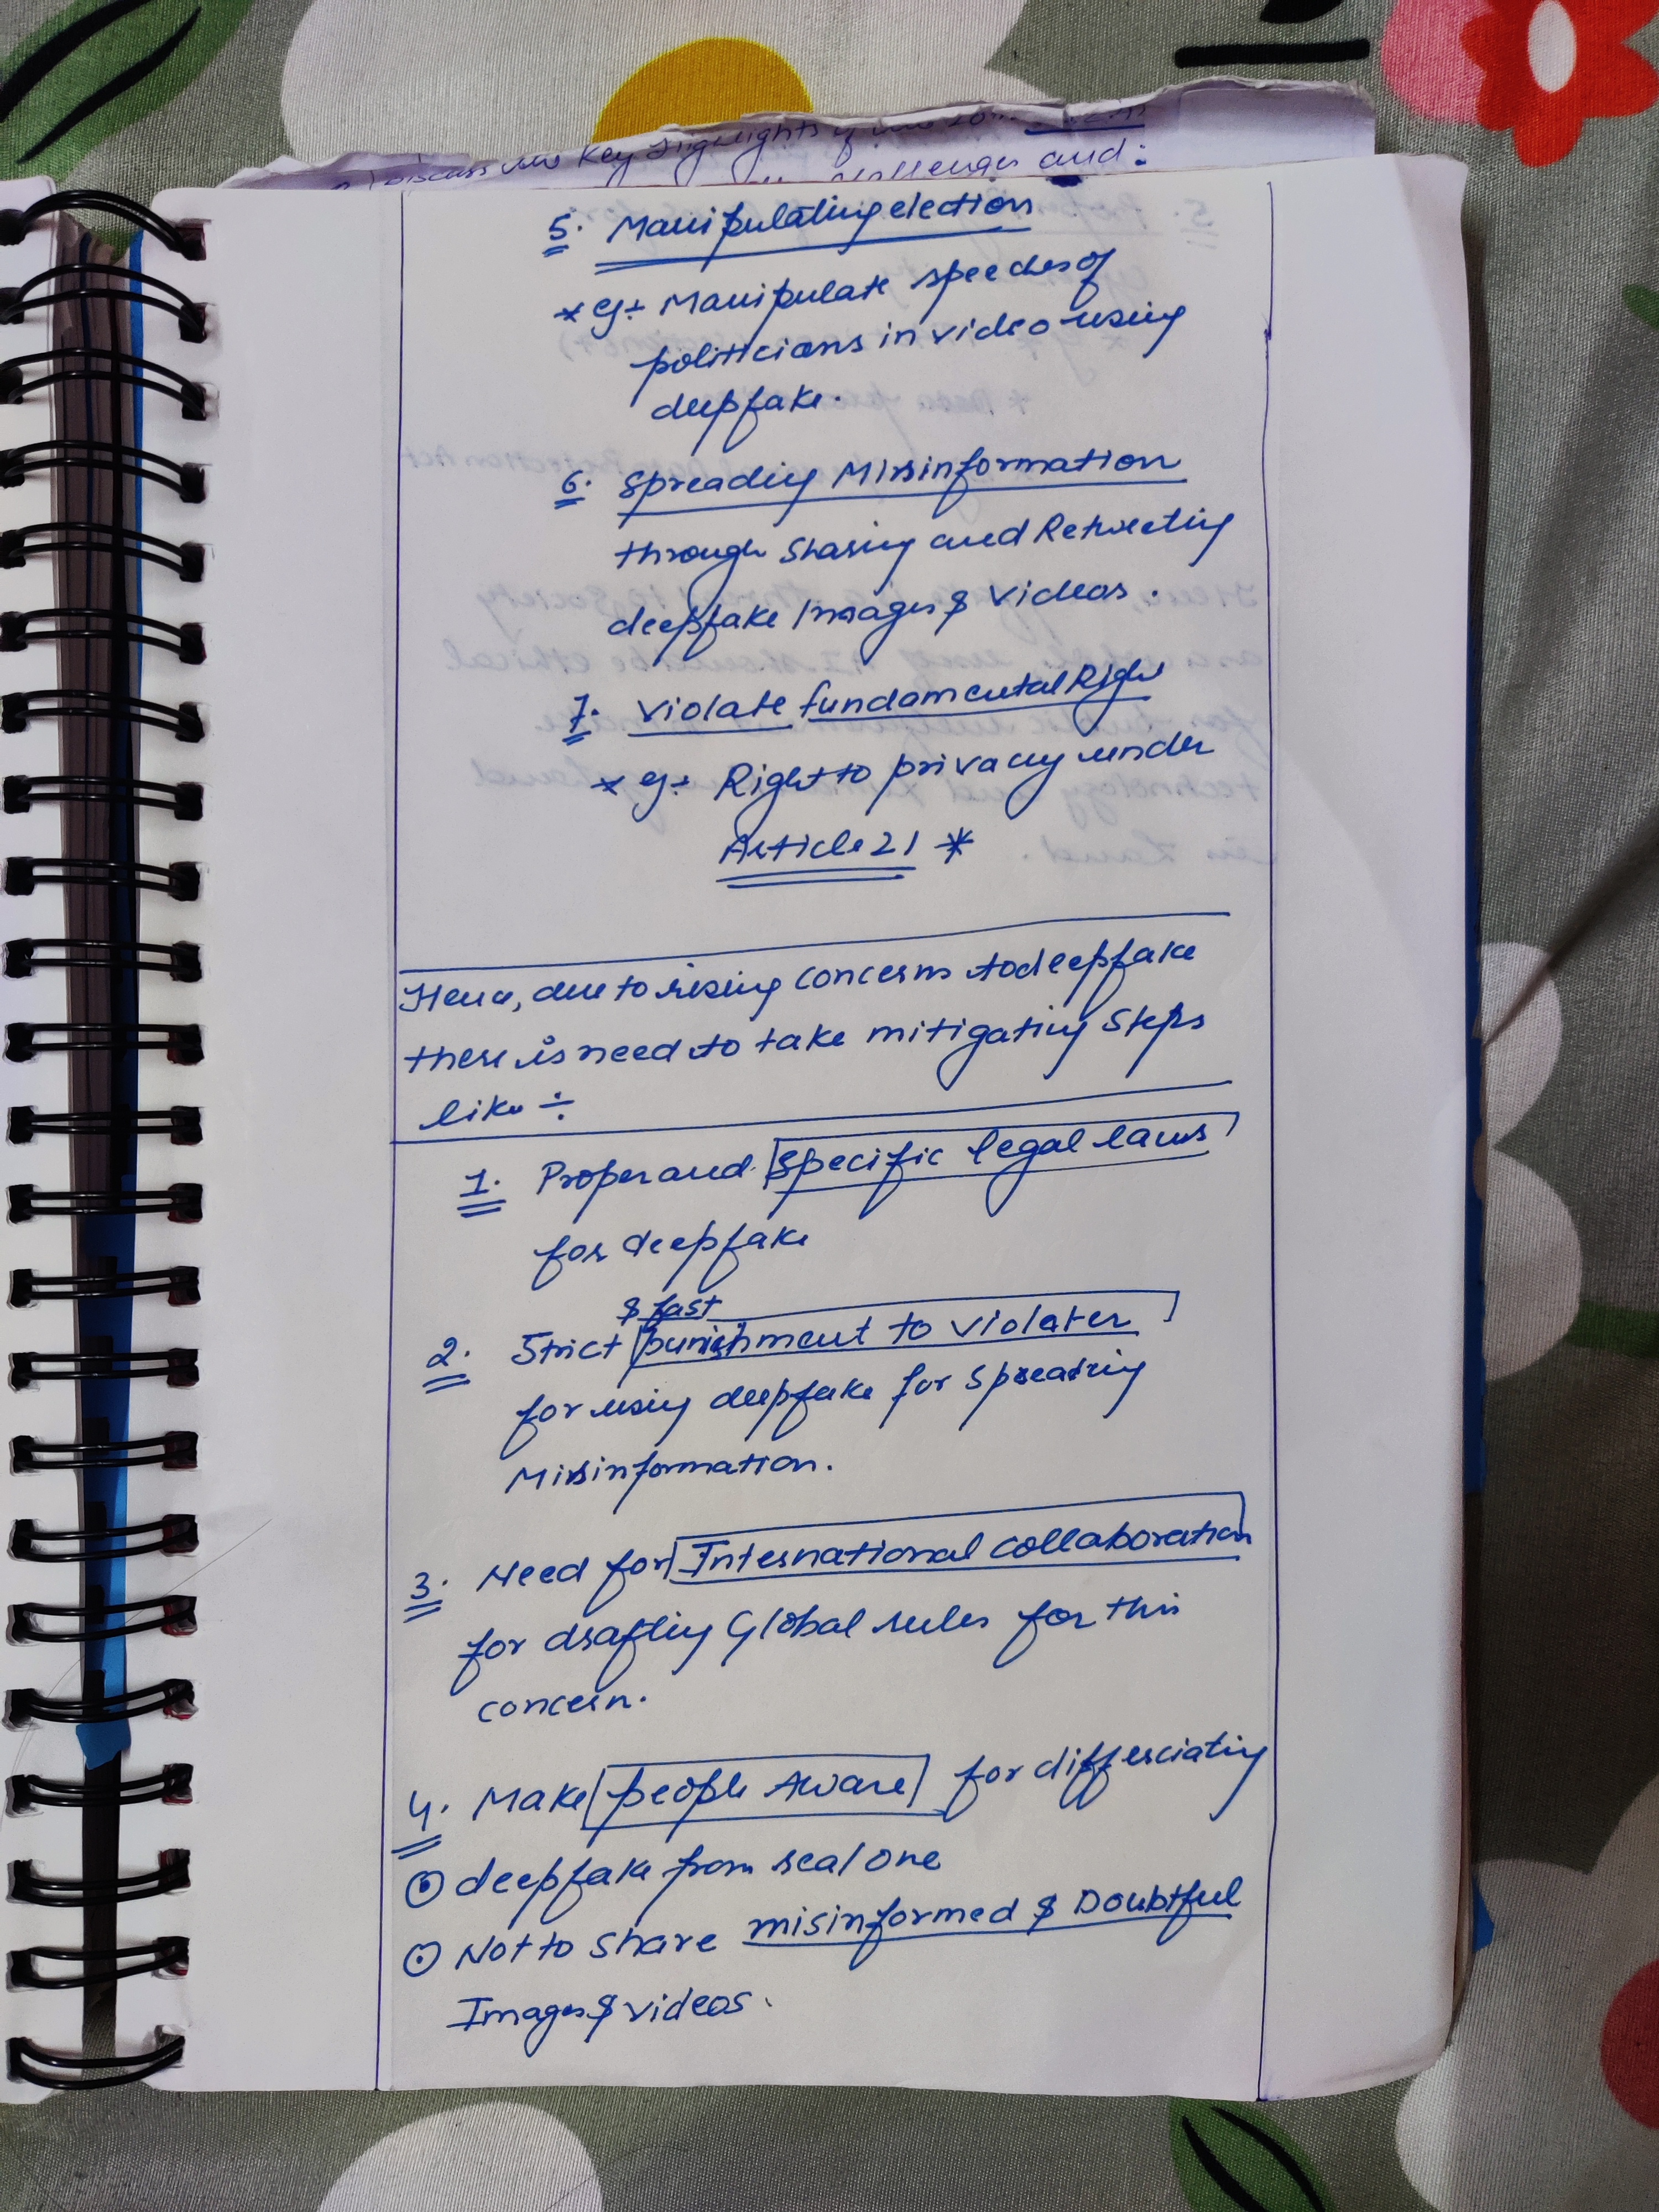 Discuss the Key Highlights of the
challenges and :
5. Manipulating election
* eg:- Manipulate speeches of
politicians in video using
deepfake.
6. Spreading Misinformation
through Sharing and Retweeting
deepfake Images & Videos.
7. Violate fundamental Right
* eg:- Right to privacy under
Article 21 *
Hence, due to rising concerns to deepfake
there is need to take mitigating Steps
like ÷
1. Proper and specific legal laws
for deepfake
& fast
2. Strict punishment to violater
for using deepfake for spreading
Misinformation.
3. Need for International collaboration
for drafting Global rules for this
concern.
4. Make people Aware for differciating
deepfake from real one
Not to share misinformed & Doubtful
Images & videos.